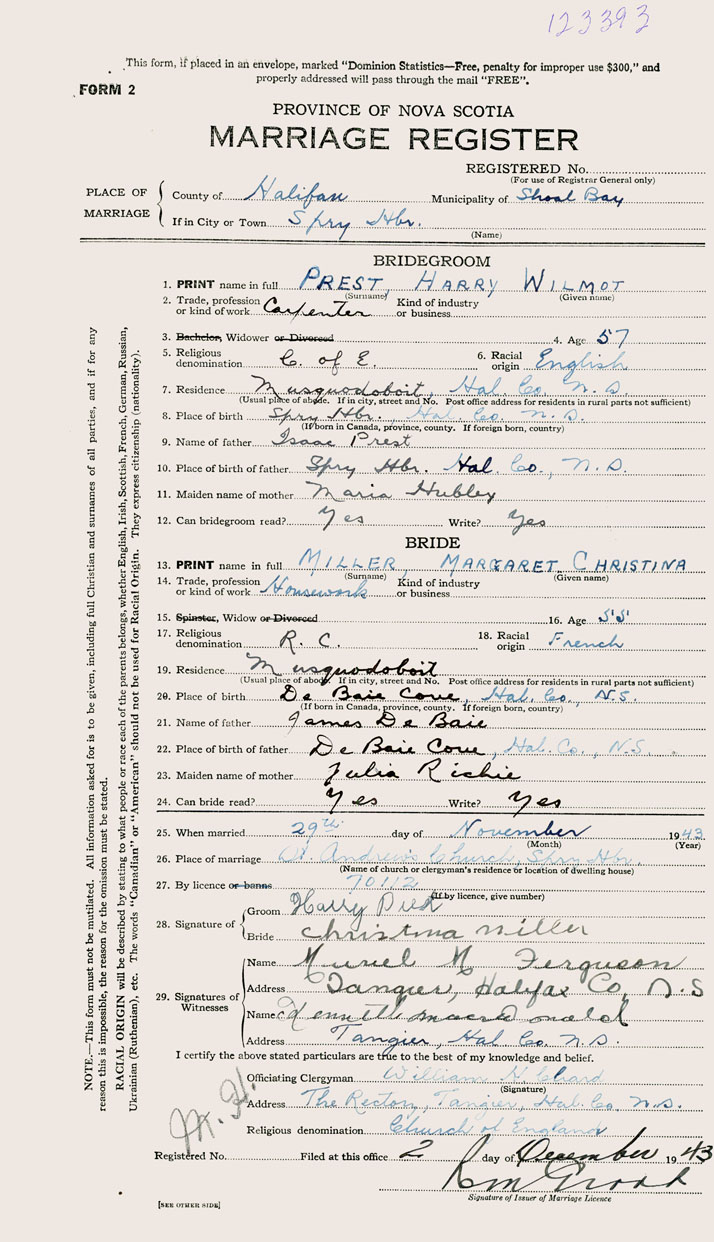 123393
This form, if placed in an envelope, marked "Dominion Statistics—Free, penalty for improper use $300," and
properly addressed will pass through the mail "FREE".
FORM 2
PROVINCE OF NOVA SCOTIA
MARRIAGE REGISTER
REGISTERED No.
(For use of Registrar General only)
PLACE OF MARRIAGE
County of Halifax Municipality of Shoal Bay
If in City or Town Spry Hbr.
(Name)
BRIDEGROOM
1. PRINT name in full PREST, HARRY WILMOT
(Surname) (Given name)
2. Trade, profession or kind of work Carpenter Kind of industry or business
3. Bachelor, Widower or Divorced 4. Age 57
5. Religious denomination C. of E. 6. Racial origin English
7. Residence Musquodoboit, Hal. Co. N.S.
(Usual place of abode. If in city, street and No. Post office address for residents in rural parts not sufficient)
8. Place of birth Spry Hbr. Hal. Co. N.S.
(If born in Canada, province, county. If foreign born, country)
9. Name of father Isaac Prest
10. Place of birth of father Spry Hbr. Hal. Co., N.S.
11. Maiden name of mother Maria Hubley
12. Can bridegroom read? Yes Write? Yes
BRIDE
13. PRINT name in full MILLER, MARGARET CHRISTINA
(Surname) (Given name)
14. Trade, profession or kind of work Housework Kind of industry or business
15. Spinster, Widow or Divorced 16. Age 55
17. Religious denomination R. C. 18. Racial origin French
19. Residence Musquodoboit
(Usual place of abode. If in city, street and No. Post office address for residents in rural parts not sufficient)
20. Place of birth De Baie Cove, Hal. Co., N.S.
(If born in Canada, province, county. If foreign born, country)
21. Name of father James De Baie
22. Place of birth of father De Baie Cove, Hal. Co., N.S.
23. Maiden name of mother Julia Richie
24. Can bride read? Yes Write? Yes
25. When married 29th day of November 1943
(Month) (Year)
26. Place of marriage St. Andrew's Church, Spry Hbr.
(Name of church or clergyman's residence or location of dwelling house)
27. By licence or banns 70112
(If by licence, give number)
28. Signature of
Groom Harry
Bride Christina Miller
29. Signatures of Witnesses
Name Muriel M. Ferguson
Address Tangier, Halifax Co, N.S
Name Kenneth Macdonald
Address Tangier, Hal. Co. N.S.
I certify the above stated particulars are true to the best of my knowledge and belief.
Officiating Clergyman William H. Chard
(Signature)
Address The Rectory, Tangier, Hal. Co. N.S.
Religious denomination Church of England
Registered No. Filed at this office 2 day of December 1943
Signature of Issuer of Marriage Licence
[SEE OTHER SIDE]
NOTE.—This form must not be mutilated. All information asked for is to be given, including full Christian and surnames of all parties, and if for any
reason this is impossible, the reason for the omission must be stated.
RACIAL ORIGIN will be described by stating to what people or race each of the parents belongs, whether English, Irish, Scottish, French, German, Russian,
Ukrainian (Ruthenian), etc. The words "Canadian" or "American" should not be used for Racial Origin. They express citizenship (nationality).